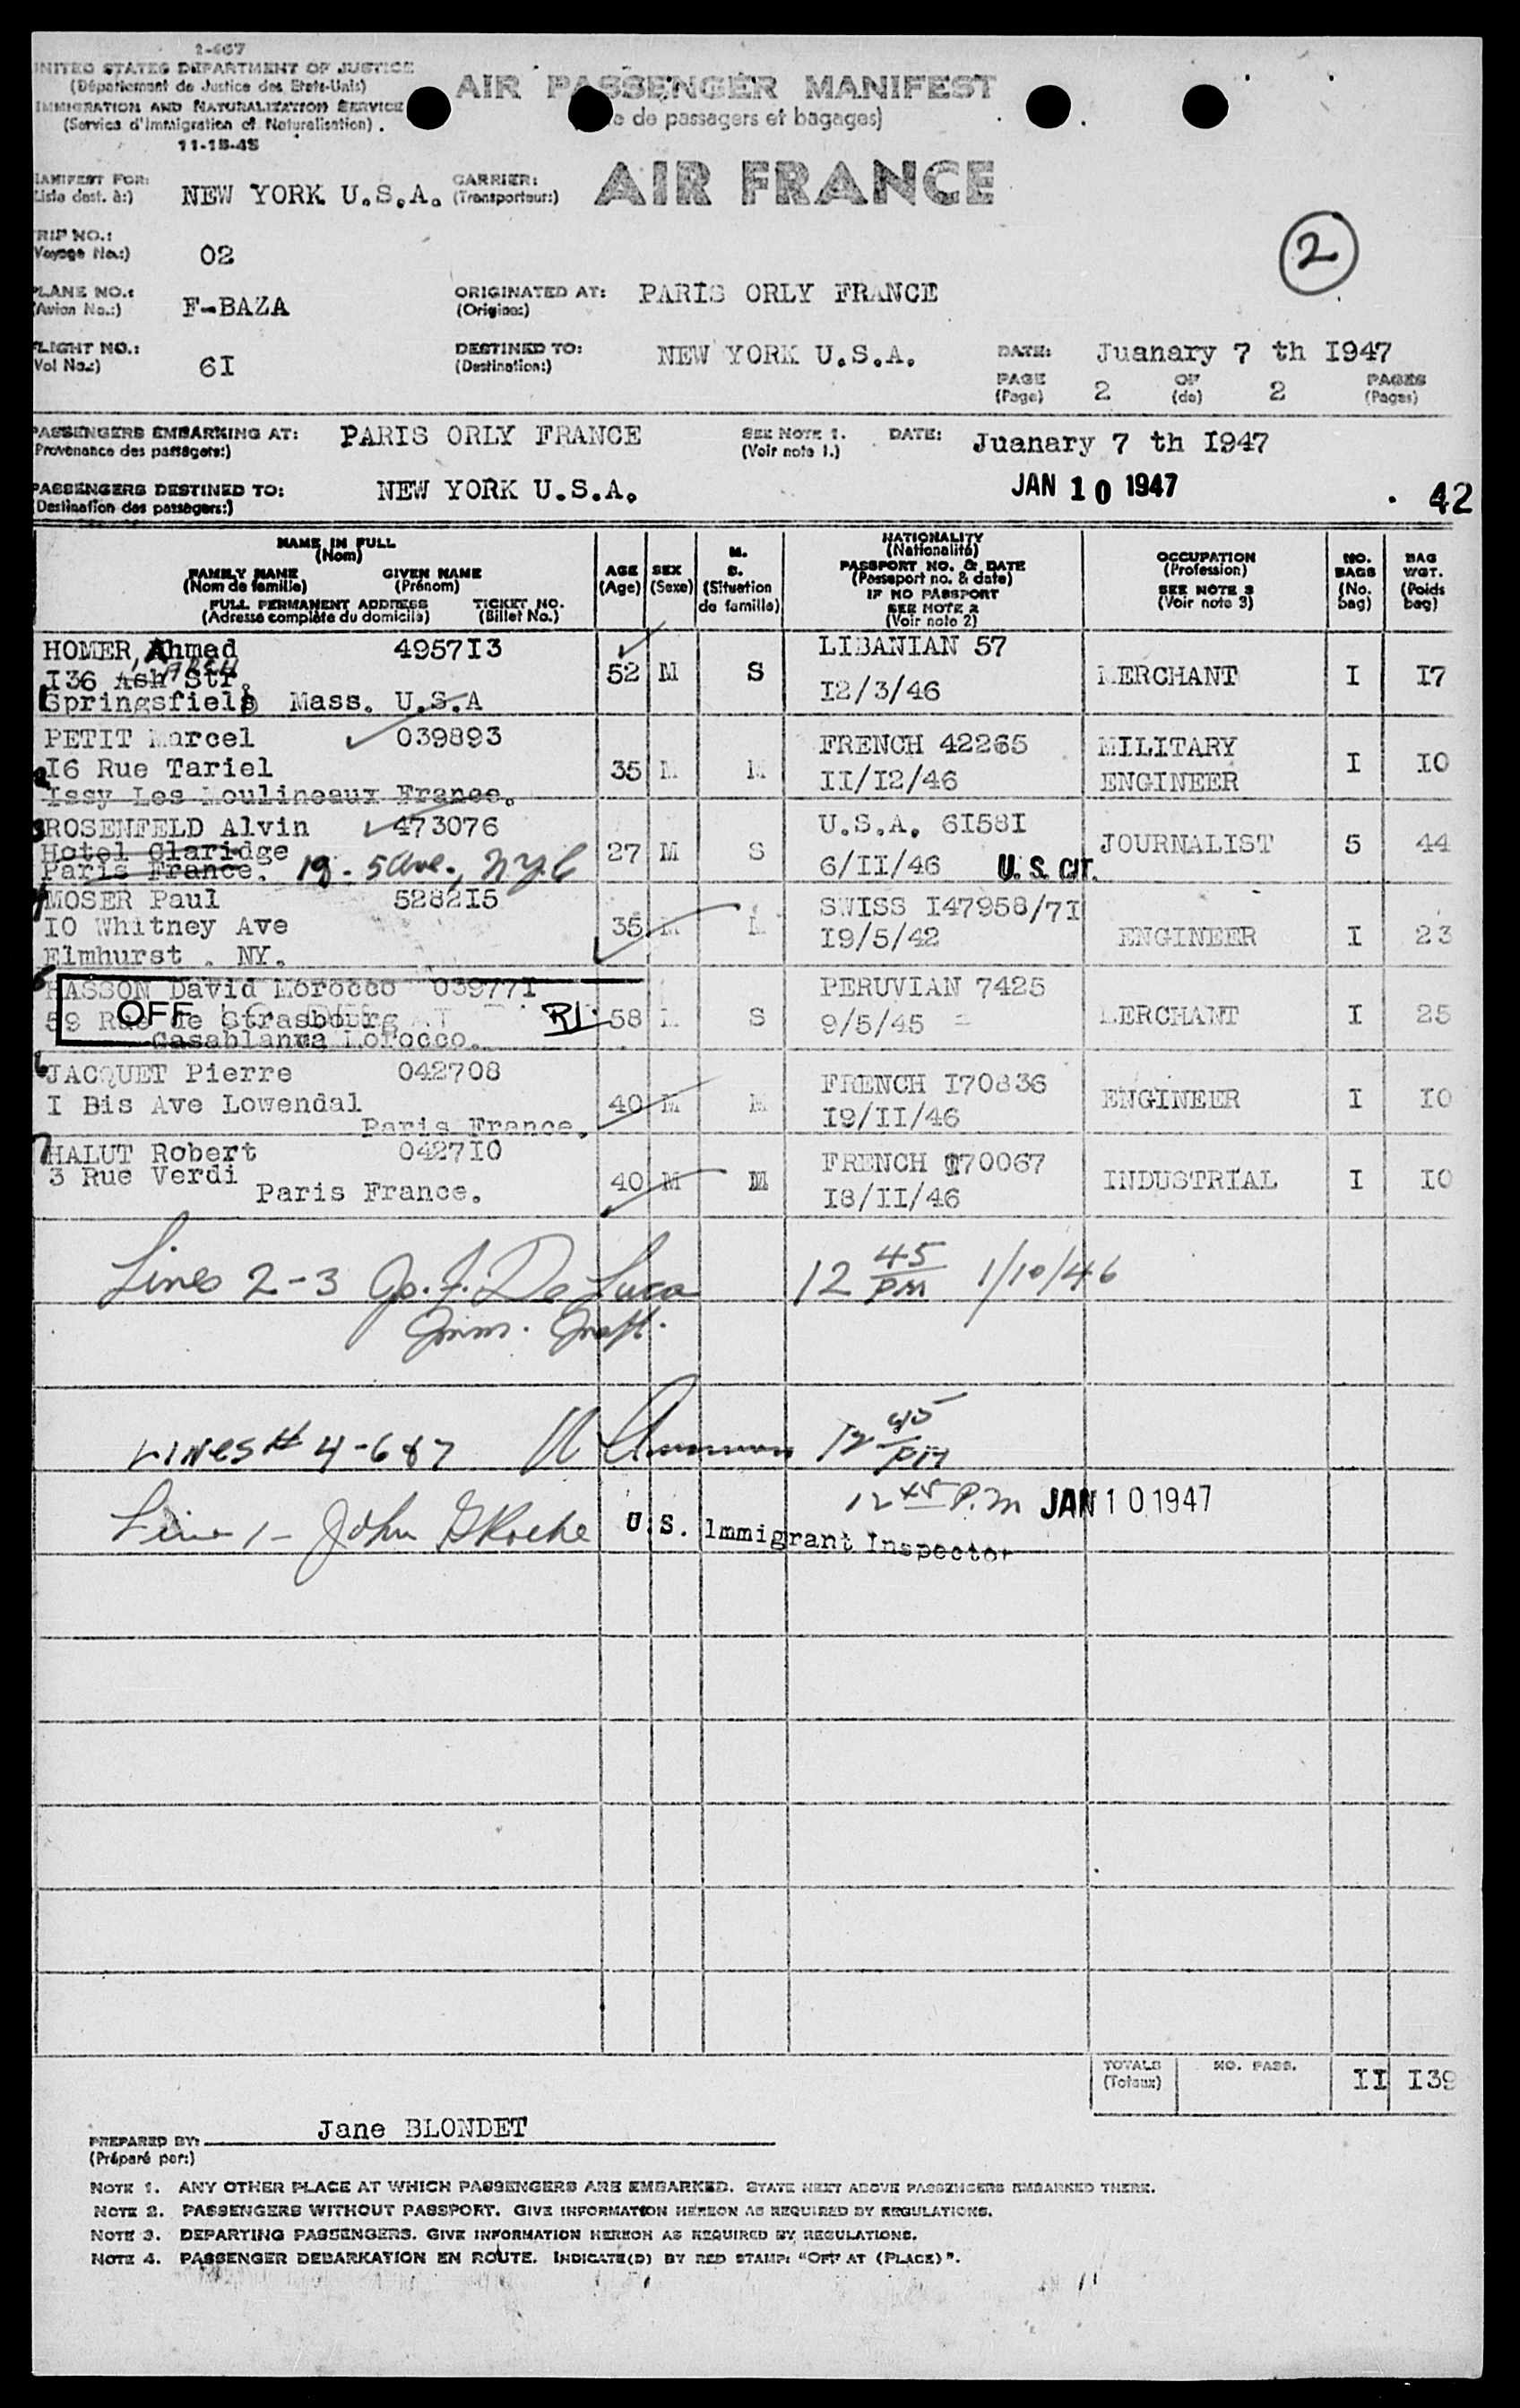 1-467
UNITED STATES DEPARTMENT OF JUSTICE
(Département de Justice des Etats-Unis)
IMMIGRATION AND NATURALIZATION SERVICE
(Service d'Immigration et Naturalisation).
11-15-45
AIR PASSENGER MANIFEST
e de passagers et bagages)
MANIFEST FOR:
(Liste dest. à:)
NEW YORK U.S.A.
CARRIER:
(Transporteur:)
AIR FRANCE
TRIP NO.:
(Voyage No.:)
02
2
PLANE NO.:
(Avion No.:)
F-BAZA
ORIGINATED AT:
(Origine:)
PARIS ORLY FRANCE
FLIGHT NO.:
(Vol No.:)
6I
DESTINED TO:
(Destination:)
NEW YORK U.S.A.
DATE:
Juanary 7 th I947
PAGE
(Page)
2
OF
(de)
2
PAGES
(Pages)
PASSENGERS EMBARKING AT:
(Provenance des passagers:)
PARIS ORLY FRANCE
SEE NOTE 1.
(Voir note 1.)
DATE:
Juanary 7 th I947
PASSENGERS DESTINED TO:
(Destination des passagers:)
NEW YORK U.S.A.
JAN 10 1947
42
NAME IN FULL
(Nom)
FAMILY NAME GIVEN NAME
(Nom de famille) (Prénom)
FULL PERMANENT ADDRESS TICKET NO.
(Adresse complète du domicile) (Billet No.)
AGE
(Age)
SEX
(Sexe)
M.
S.
(Situation
de famille)
NATIONALITY
(Nationalité)
PASSPORT NO. & DATE
(Passeport no. & date)
IF NO PASSPORT
SEE NOTE 2
(Voir note 2)
OCCUPATION
(Profession)
SEE NOTE 3
(Voir note 3)
NO.
BAGS
(No.
bag)
BAG
WGT.
(Poids
bag)
HOMER, Ahmed 4957I3
I36 Ash Str.
Springsfield Mass. U.S.A
52 M S
LIBANIAN 57
I2/3/46
MERCHANT I I7
PETIT Marcel 039893
I6 Rue Tariel
Issy Les Moulineaux France.
35 M M
FRENCH 42265
II/I2/46
MILITARY
ENGINEER
I I0
ROSENFELD Alvin 473076
Hotel Claridge
Paris France. 19 - 5 Ave., N.Y.C
27 M S
U.S.A. 6I58I
6/II/46 U.S. CIT.
JOURNALIST 5 44
MOSER Paul 5282I5
I0 Whitney Ave
Elmhurst . NY.
35 M M
SWISS I47958/7I
I9/5/42
ENGINEER I 23
HASSON David Morocco 03977I
59 Rue de Strasbourg
Casablanca Morocco.
OFF
58 M S
PERUVIAN 7425
9/5/45
MERCHANT I 25
JACQUET Pierre 042708
I Bis Ave Lowendal
Paris France.
40 M M
FRENCH I70836
I9/II/46
ENGINEER I I0
HALUT Robert 0427I0
3 Rue Verdi
Paris France.
40 M M
FRENCH I70067
I8/II/46
INDUSTRIAL I I0
Lines 2-3 Jo. F. De Luca 12 45 PM 1/10/46
Imm. Insp.
LINES # 4-6&7 12 45 PM
12 45 P.M JAN 10 1947
Line 1 - John G Roche U.S. Immigrant Inspector
TOTALS
(Totaux)
NO. PASS.
II I39
PREPARED BY:
(Préparé par:)
Jane BLONDET
NOTE 1. ANY OTHER PLACE AT WHICH PASSENGERS ARE EMBARKED. STATE NEXT ABOVE PASSENGERS EMBARKED THERE.
NOTE 2. PASSENGERS WITHOUT PASSPORT. GIVE INFORMATION HEREON AS REQUIRED BY REGULATIONS.
NOTE 3. DEPARTING PASSENGERS. GIVE INFORMATION HEREON AS REQUIRED BY REGULATIONS.
NOTE 4. PASSENGER DEBARKATION EN ROUTE. INDICATE(D) BY RED STAMP: "OFF AT (PLACE)".